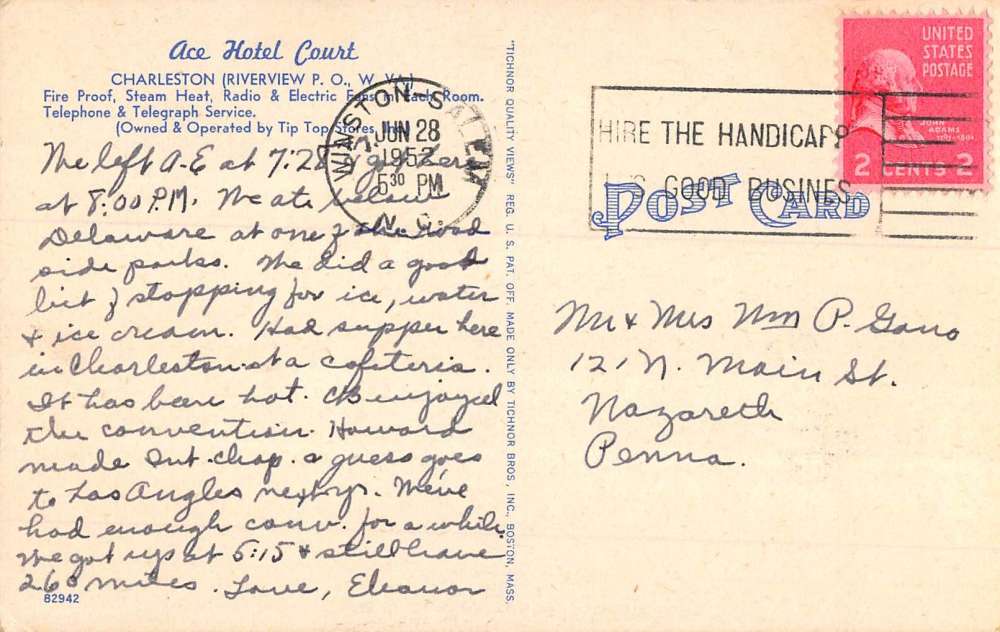 Ace Hotel Court
CHARLESTON (RIVERVIEW P. O., W. VA.)
Fire Proof, Steam Heat, Radio & Electric Fans in Each Room.
Telephone & Telegraph Service.
(Owned & Operated by Tip Top Stores, Inc.)
We left A-E at 7:28 & got here
at 8:00 P.M. We ate below
Delaware at one of the road
side parks. We did a good
bit of stopping for ice, water
& ice cream. Had supper here
in Charleston at a cafeteria.
It has been hot. enjoyed
the convention. Howard
made Int. Chap. & guess goes
to Los Angles next yr. We've
had enough conv. for a while.
We got up at 5:15 & still have
260 miles. Love, Eleanor
82942
"TICHNOR QUALITY VIEWS" REG. U. S. PAT. OFF. MADE ONLY BY TICHNOR BROS., INC., BOSTON, MASS.
WINSTON-SALEM
JUN 28
1952
5 30 PM
N.C.
HIRE THE HANDICAPP
GOOD BUSINES
UNITED
STATES
POSTAGE
JOHN
ADAMS
2 CENTS 2
POST CARD
Mr & Mrs Wm P. Gano
121 N. Main St.
Nazareth
Penna.